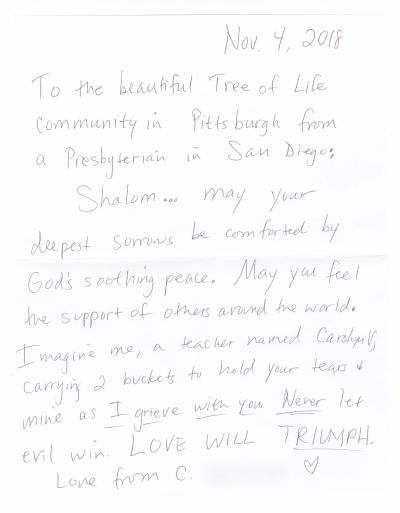 Nov. 4, 2018
To the beautiful Tree of Life
community in Pittsburgh from
a Presbyterian in San Diego:
Shalom... may your
deepest sorrows be comforted by
God's soothing peace. May you feel
the support of others around the world.
Imagine me, a teacher named
carrying 2 buckets to hold your tears &
mine as I grieve with you Never let
evil win. LOVE WILL TRIUMPH.
Love from C. ♡